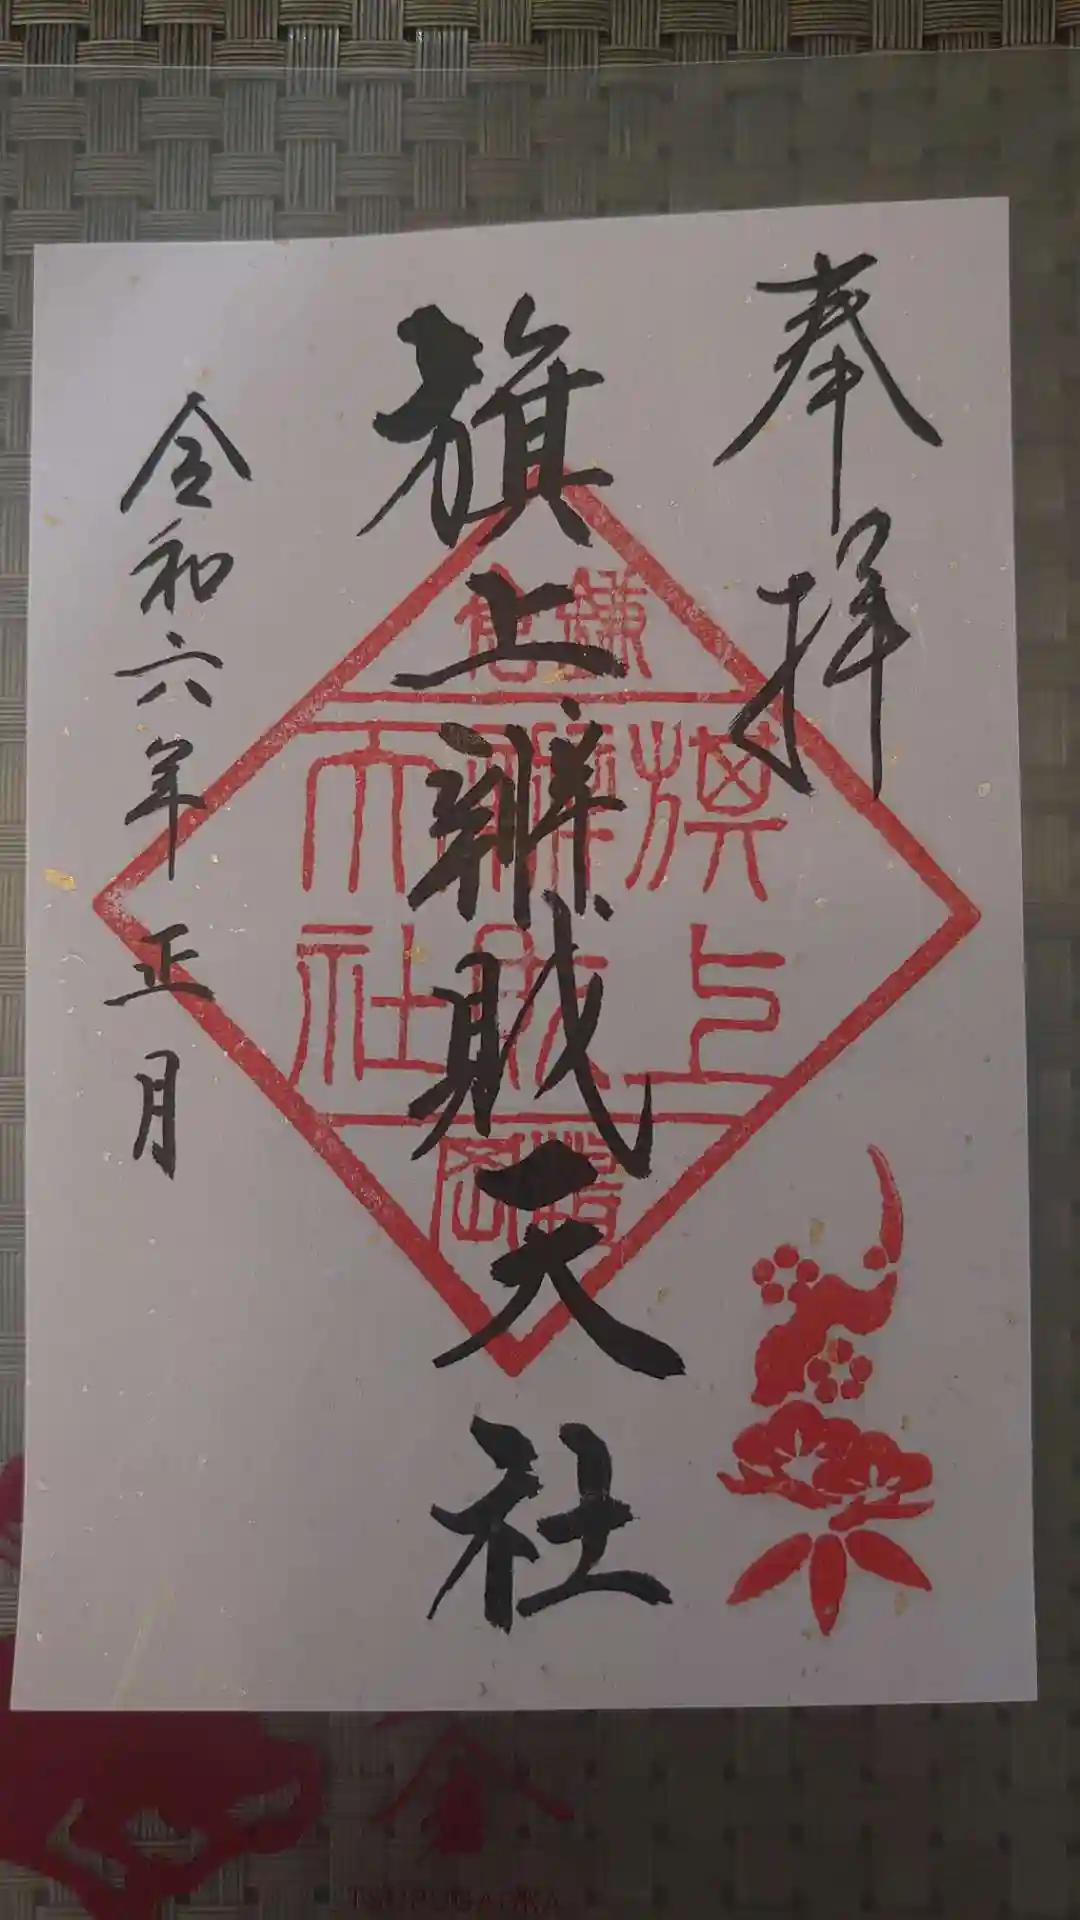 奉拝
旗上辨財天社
令和六年正月
鎌倉
旗上
辨財
天社
鶴岡
TSURUGAOKA